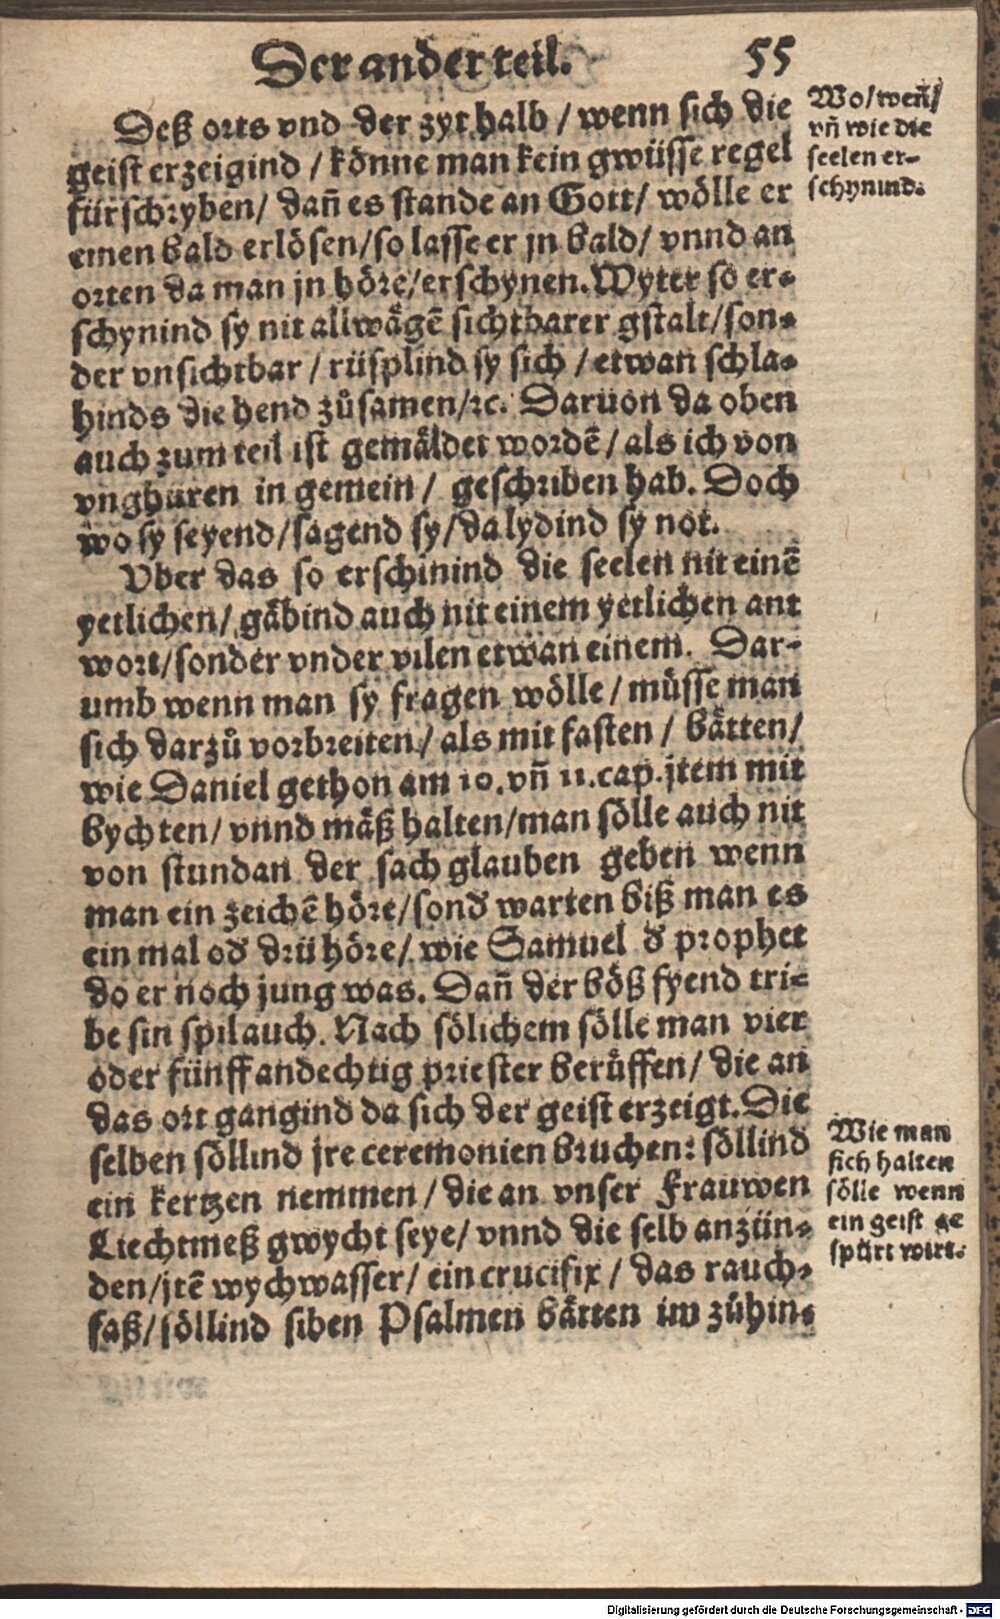 Der ander teil. 55
Deß orts vnd der zyt halb / wenn sich die
geist erzeigind / könne man kein gwüsse regel
fürschryben / dañ es stande an Gott / wölle er
einen bald erlösen / so lasse er jn bald / vnnd an
orten da man jn höre / erschynen. Wyter so er-
schynind sy nit allwägē sichtbarer gstalt / son-
der vnsichtbar / rüsplind sy sich / etwan schla-
hinds die hend zůsamen / ꝛc. Daruon da oben
auch zum teil ist gemäldet wordē / als ich von
vnghüren in gemein / geschriben hab. Doch
wo sy seyend / sagend sy / da lydind sy not.
Vber das so erschinind die seelen nit einē
yetlichen / gäbind auch nit einem yetlichen ant
wort / sonder vnder vilen etwan einem. Dar-
umb wenn man sy fragen wölle / müsse man
sich darzů vorbreiten / als mit fasten / bätten /
wie Daniel gethon am 10. vñ 11. cap. jtem mit
bychten / vnnd mäß halten / man sölle auch nit
von stundan der sach glauben geben wenn
man ein zeichē höre / sonđ warten biß man es
ein mal ođ drü höre / wie Samuel đ prophet
do er noch jung was. Dañ der böß fyend tri-
be sin spil auch. Nach sölichem sölle man vier
oder fünff andechtig priester berüffen / die an
das ort gangind da sich der geist erzeigt. Die
selben söllind jre ceremonien bruchen: söllind
ein kertzen nemmen / die an vnser Frauwen
Liechtmeß gwycht seye / vnnd die selb anzün-
den / jtē wychwasser / ein crucifix / das rauch-
faß / söllind siben Psalmen bätten im zůhin-
Wo / weñ /
vñ wie die
seelen er-
schynind.
Wie man
sich halten
sölle wenn
ein geist ge
spürt wirt.
Digitalisierung gefördert durch die Deutsche Forschungsgemeinschaft - DFG